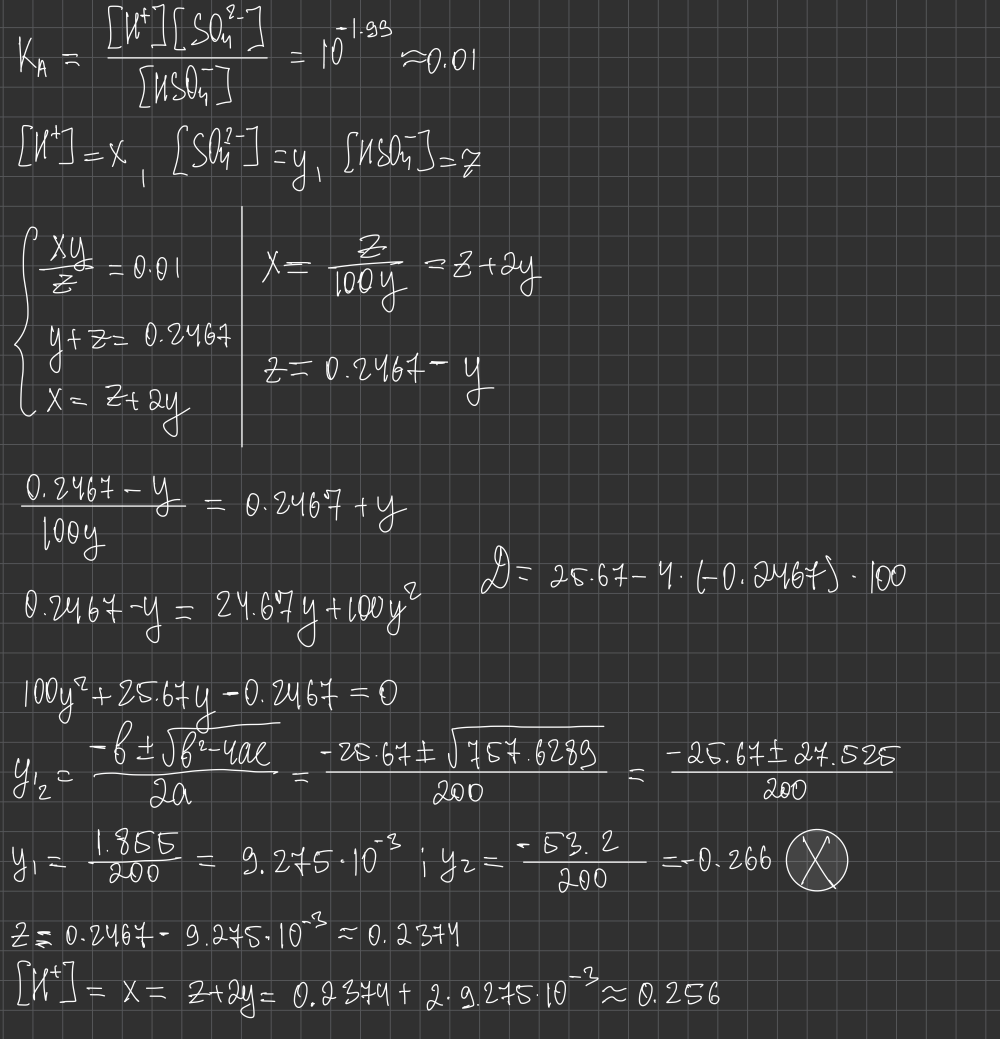 K_A = [H⁺][SO₄²⁻] / [HSO₄⁻] = 10^-1.99 ≈ 0.01
[H⁺] = x, [SO₄²⁻] = y, [HSO₄⁻] = z
xy / z = 0.01
y + z = 0.2467
x = z + 2y
x = z / 100y = z + 2y
z = 0.2467 - y
(0.2467 - y) / 100y = 0.2467 + y
D = 25.67 - 4 · (-0.2467) · 100
0.2467 - y = 24.67y + 100y²
100y² + 25.67y - 0.2467 = 0
y₁₂ = (-b ± √(b² - 4ac)) / 2a = (-25.67 ± √757.6289) / 200 = (-25.67 ± 27.525) / 200
y₁ = 1.855 / 200 = 9.275 · 10⁻³ ; y₂ = -53.2 / 200 = -0.266 X
z = 0.2467 - 9.275 · 10⁻³ ≈ 0.2374
[H⁺] = x = z + 2y = 0.2374 + 2 · 9.275 · 10⁻³ ≈ 0.256